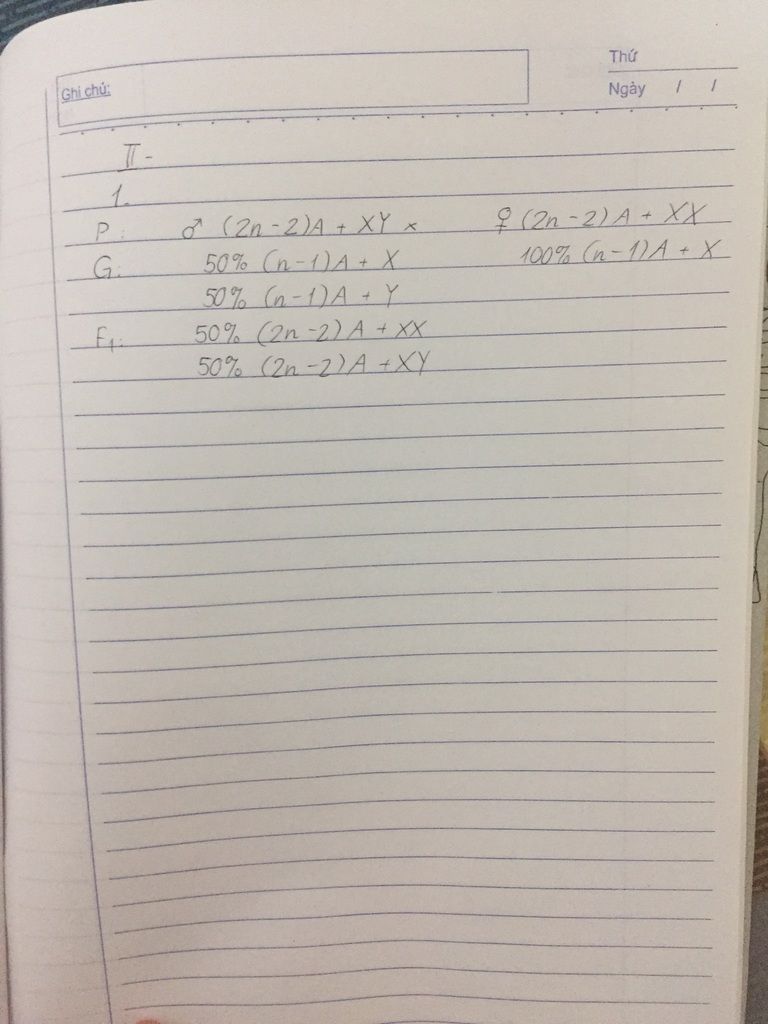 Thứ
Ghi chú:
Ngày / /
II-
1.
P: ♂ (2n-2)A + XY × ♀ (2n-2)A + XX
G: 50% (n-1)A + X 100% (n-1)A + X
50% (n-1)A + Y
F₁: 50% (2n-2)A + XX
50% (2n-2)A + XY